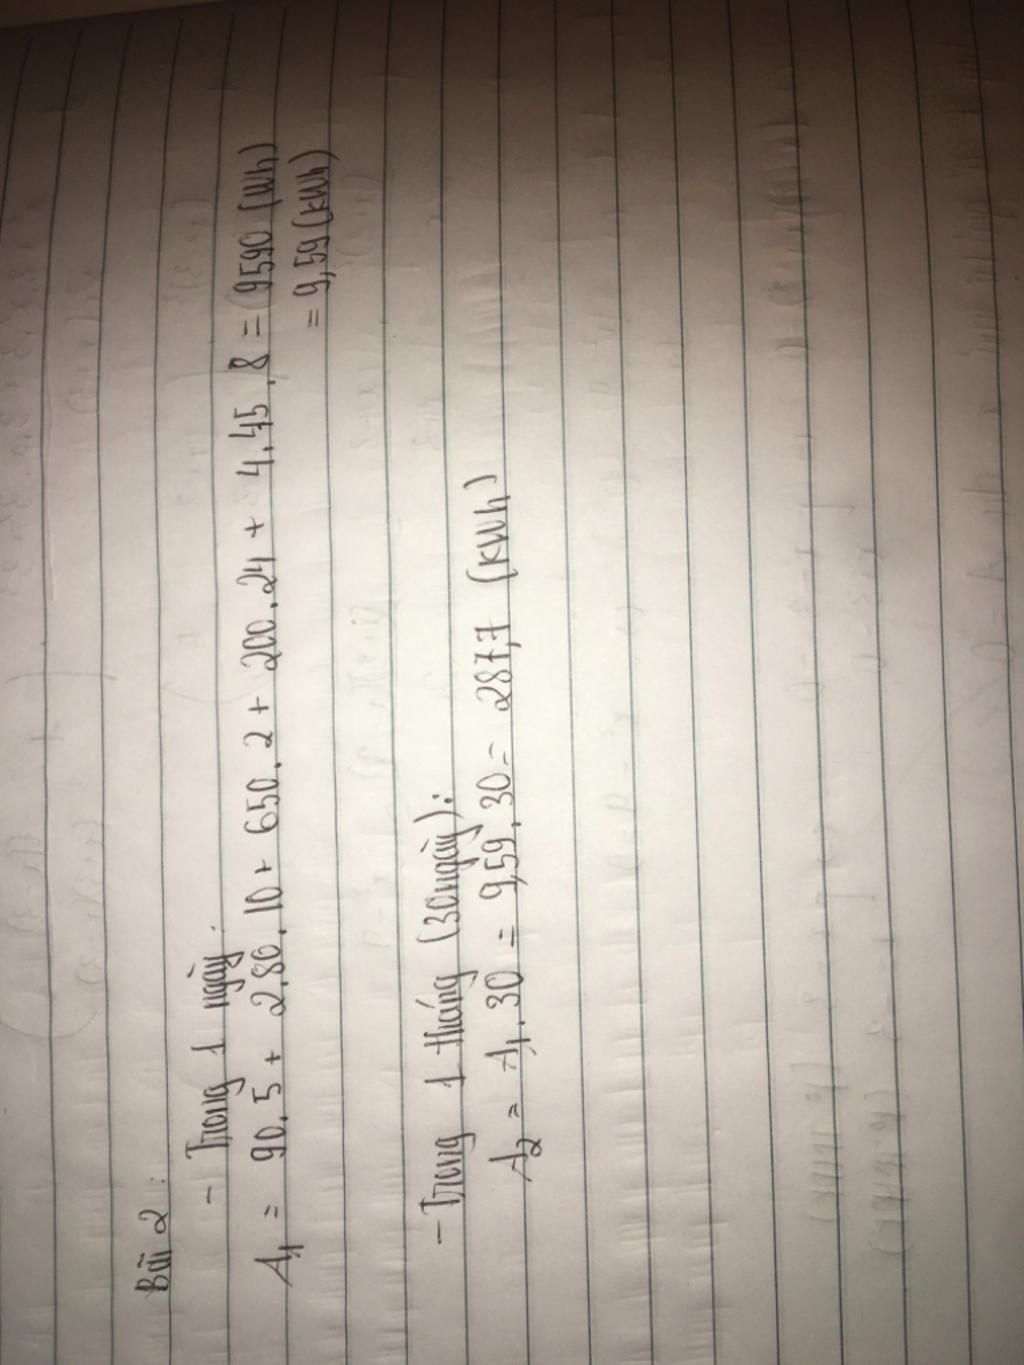 Bài 2:
- Trong 1 ngày:
A₁ = 90.5 + 2.80.10 + 650.2 + 200.24 + 4.45.8 = 9590 (Wh)
= 9,59 (kWh)
- Trong 1 tháng (30 ngày):
A₂ = A₁.30 = 9,59.30 = 287,7 (kWh)